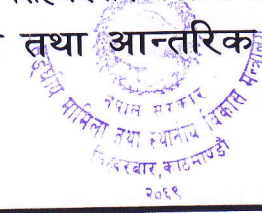 तथा आन्तरिक
नेपाल सरकार
सङ्घीय मामिला तथा स्थानीय विकास मन्त्रालय
सिंहदरबार, काठमाण्डौ
२०६९